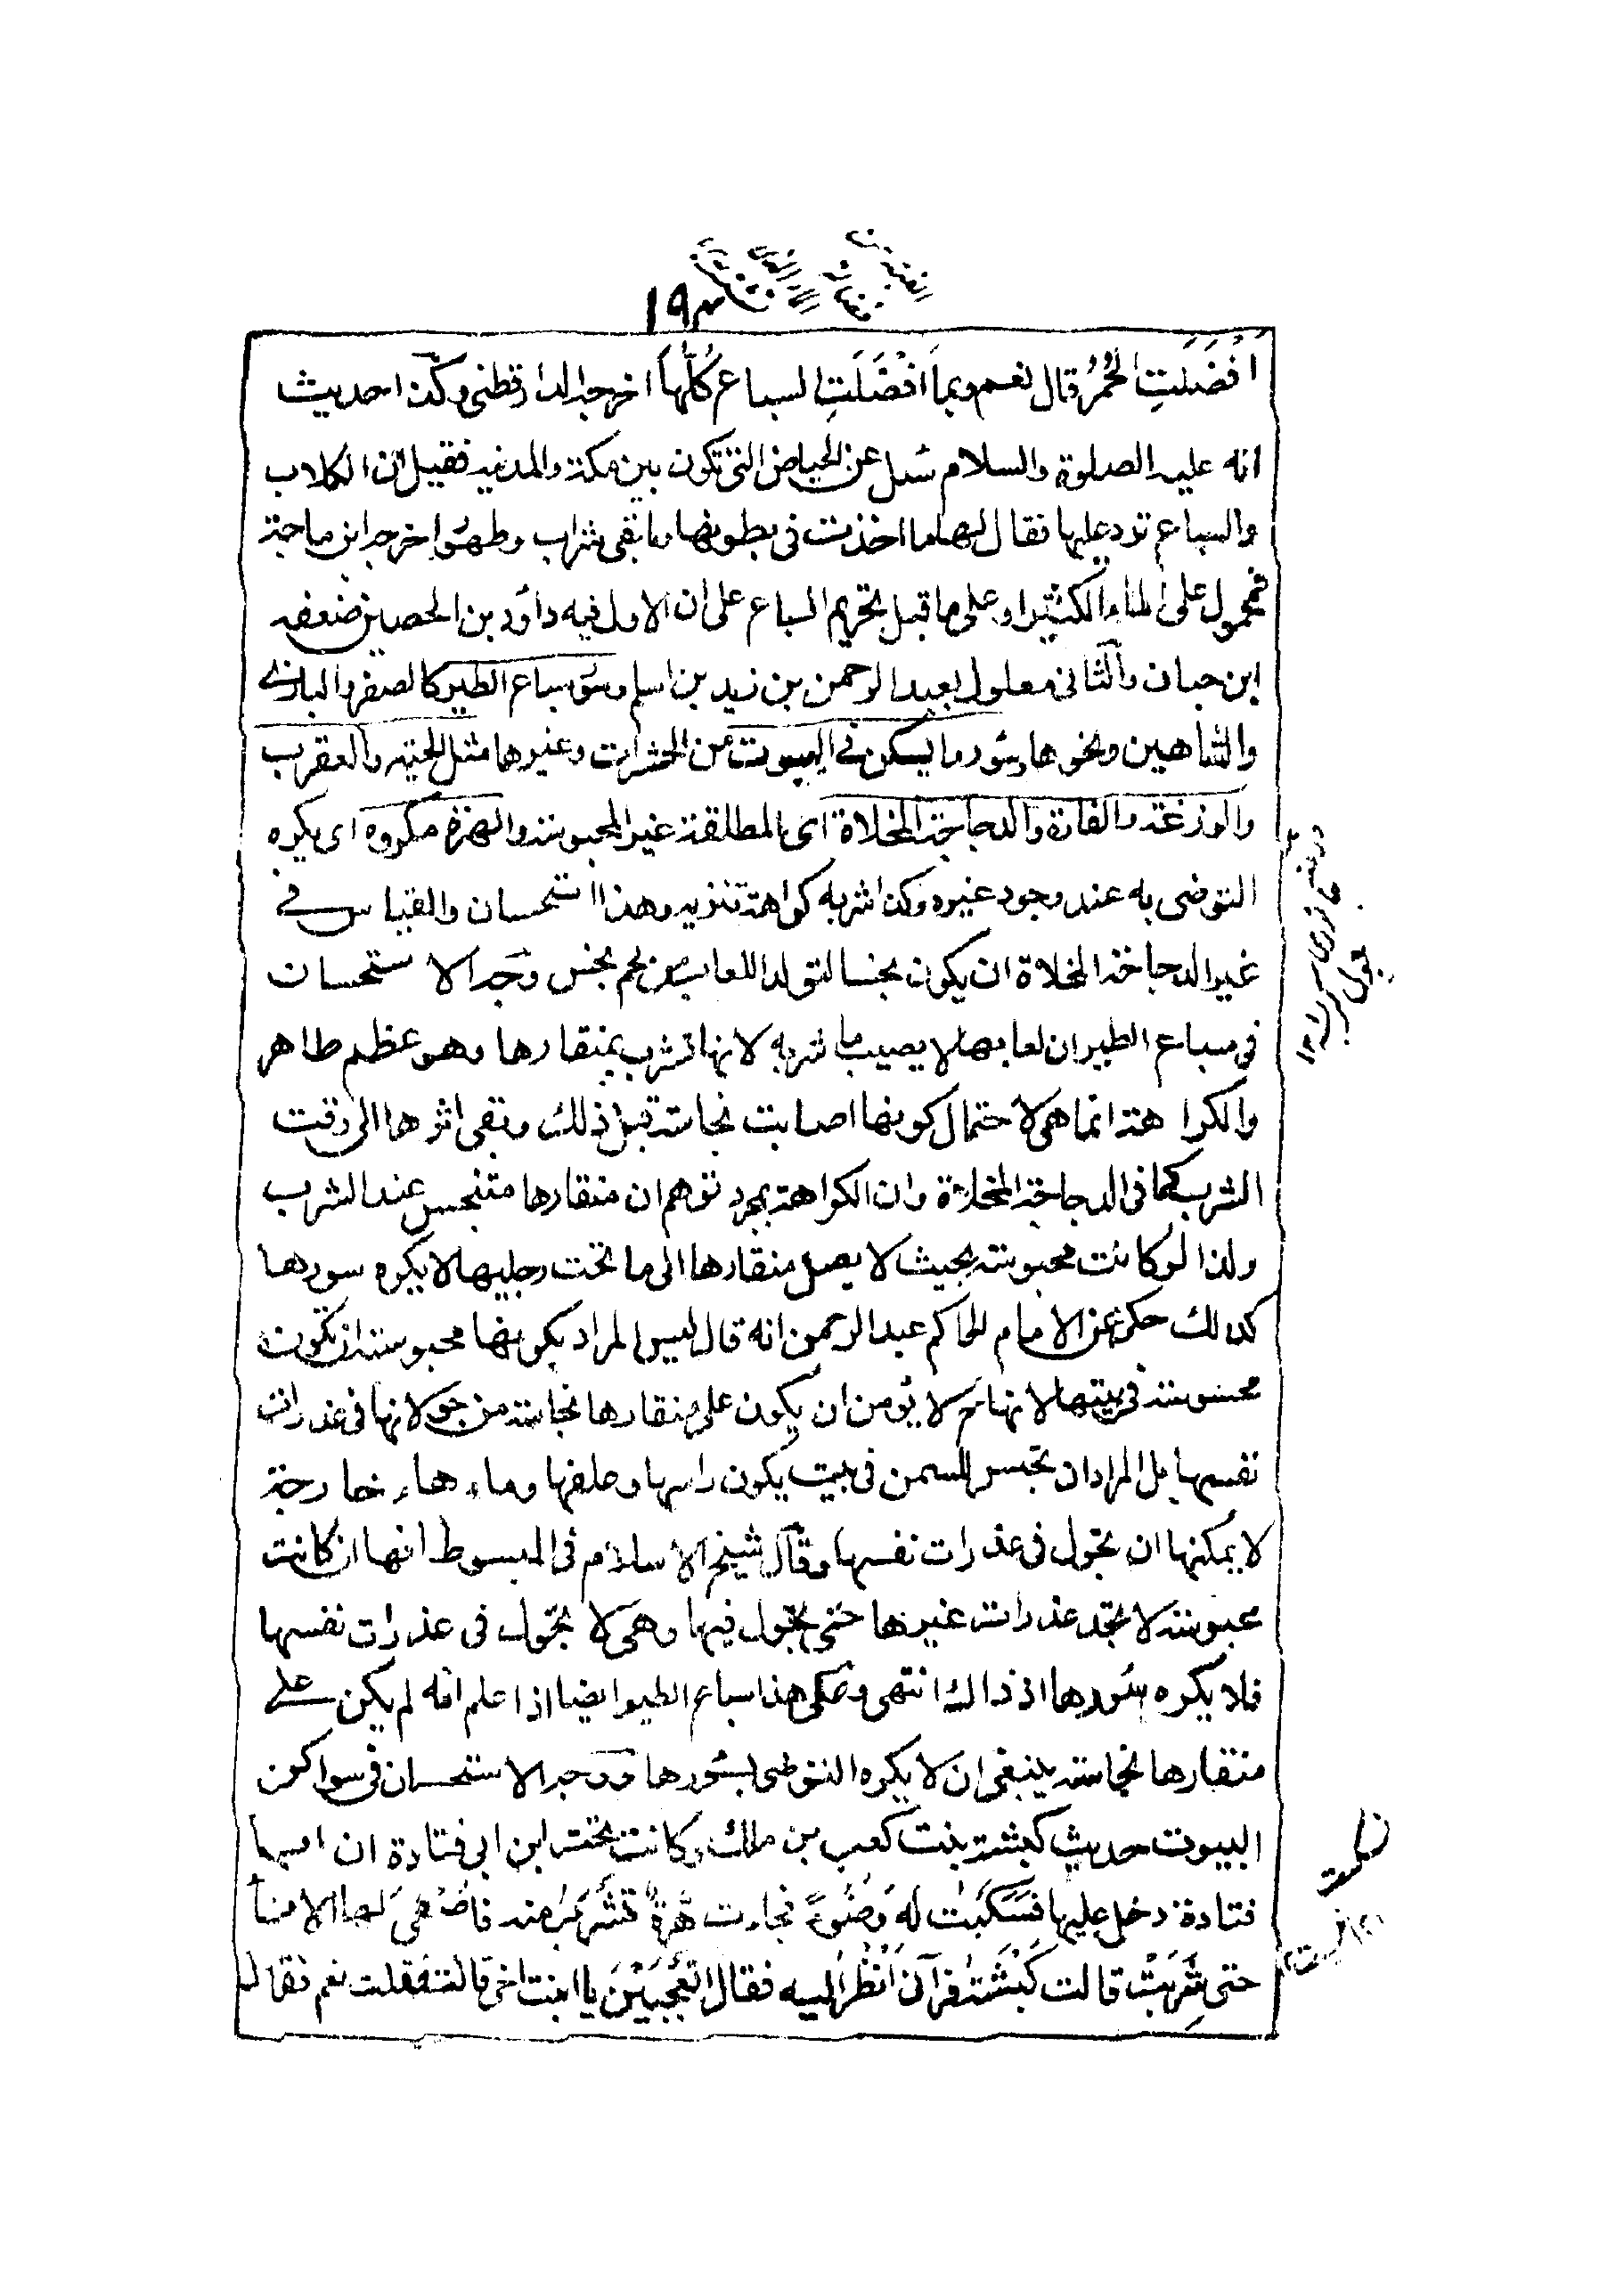 ١٩٣
اَفْضَلَتِ الْحُمُرُ قال نعم وبما اَفْضَلَتِ السباع كُلُّهَا اخرجه الدارقطني وكذا حديث
انه عليه الصلوة والسلام سُئل عن الحياض التي تكون بين مكة والمدينه فقيل ان الكلاب
والسباع ترد عليها فقال لها ما اخذت في بطونها وما بقي شراب وطهور اخرجه ابن ماجة
فمحمول على الماء الكثير او على ما قبل تحريم السباع على ان الاول فيه داؤد بن الحصين ضعفه
ابن حبان والثاني معلول بعبد الرحمن بن زيد بن اسلم وسؤر سباع الطير كالصقر والبازي
والشاهين ونحوها وسؤر ما يسكن في البيوت من الحشرات وغيرها مثل الحية والعقرب
والوزغة والفارة والدجاجة المخلاة اي المطلقة غير المحبوسة والهرة مكروه اي يكره
التوضي به عند وجود غيره وكذا شربه كراهة تنزيه وهذا استحسان والقياس في
غير الدجاجة المخلاة ان يكون نجسا لتولد اللعاب من لحم نجس وجه الاستحسان
في سباع الطير ان لعابها لا يصيب ما شربه لانها تشرب بمنقارها وهو عظم طاهر
والكراهة انما هي لاحتمال كونها اصابت نجاسة قبل ذلك وبقي اثرها الى وقت
الشرب كما في الدجاجة المخلاة وان الكراهة بمجرد توهم ان منقارها متنجس عند الشرب
ولذا لو كانت محبوسة بحيث لا يصل منقارها الى ما تحت رجليها لا يكره سورها
كذلك حكي عن الامام الحاكم عبد الرحمن انه قال ليس المراد بكونها محبوسة ان تكون
محبوسة في بيتها لانها لا يؤمن ان يكون على منقارها نجاسة من جولانها في عذرات
نفسها بل المراد ان تحبس للسمن في بيت يكون راسها وعلفها وماءها خارجة
لا يمكنها ان تجول في عذرات نفسها وقال شيخ الاسلام في المبسوط انها ان كانت
محبوسة لا تجد عذرات غيرها حتى تجول فيها وهي لا تجول في عذرات نفسها
فلا يكره سؤرها اذ ذاك انتهى وعلى هذا سباع الطير ايضا اذا علم انه لم يكن على
منقارها نجاسة ينبغي ان لا يكره التوضي بسؤرها ووجه الاستحسان في سواكن
البيوت حديث كبشة بنت كعب بن مالك وكانت تحت ابن ابي قتادة ان ابا
قتادة دخل عليها فَسَكَبَتْ لَهُ وَضُوْءً فجاءت هِرَّةٌ تشرب منه فاصغى لها الاناء
حتى شَرِبَتْ قالت كَبْشَة فرآني اَنْظُرُ اليه فقال اتَعْجَبِيْنَ يا ابنت اخي قالت فقلت نعم فقال